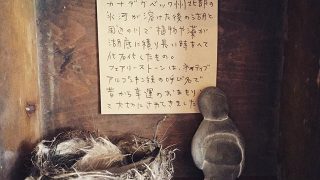 カナダケベック州北部の
氷河が溶けた後の湖と
周辺の川で植物や藻が
湖底に積り長い時を経て
化石化したもの。
フェアリーストーンは、ネイティブ
アルゴンキン族の呼び名で
昔から幸運のお守り
として大切にされてきました